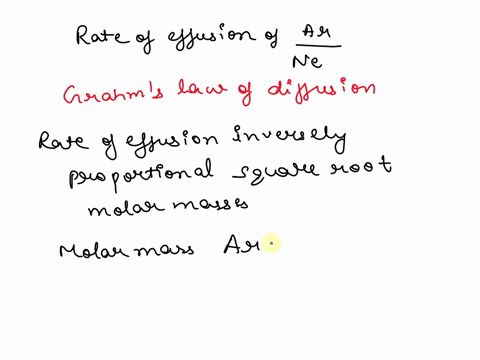 Rate of effusion of Ar/Ne
Grahm's law of diffusion
Rate of effusion inversely
proportional square root
molar masses
Molar mass Ar